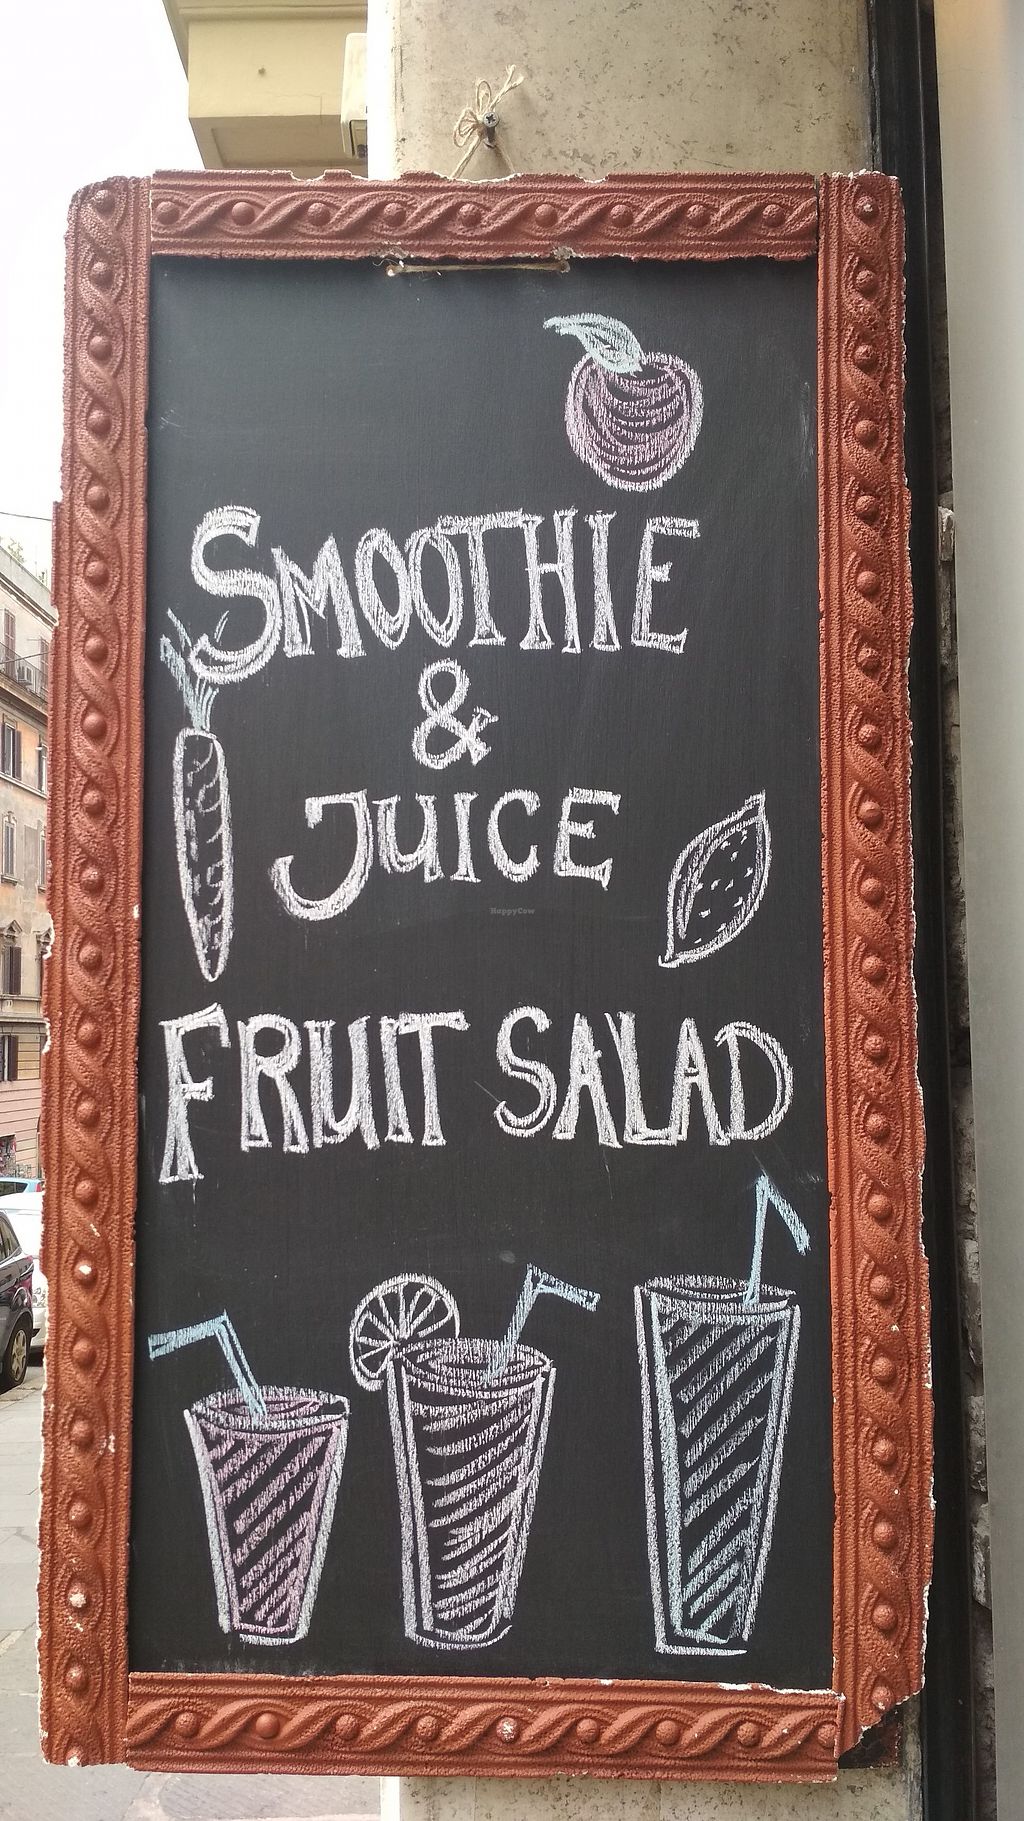 SMOOTHIE
&
JUICE
HappyCow
FRUIT SALAD